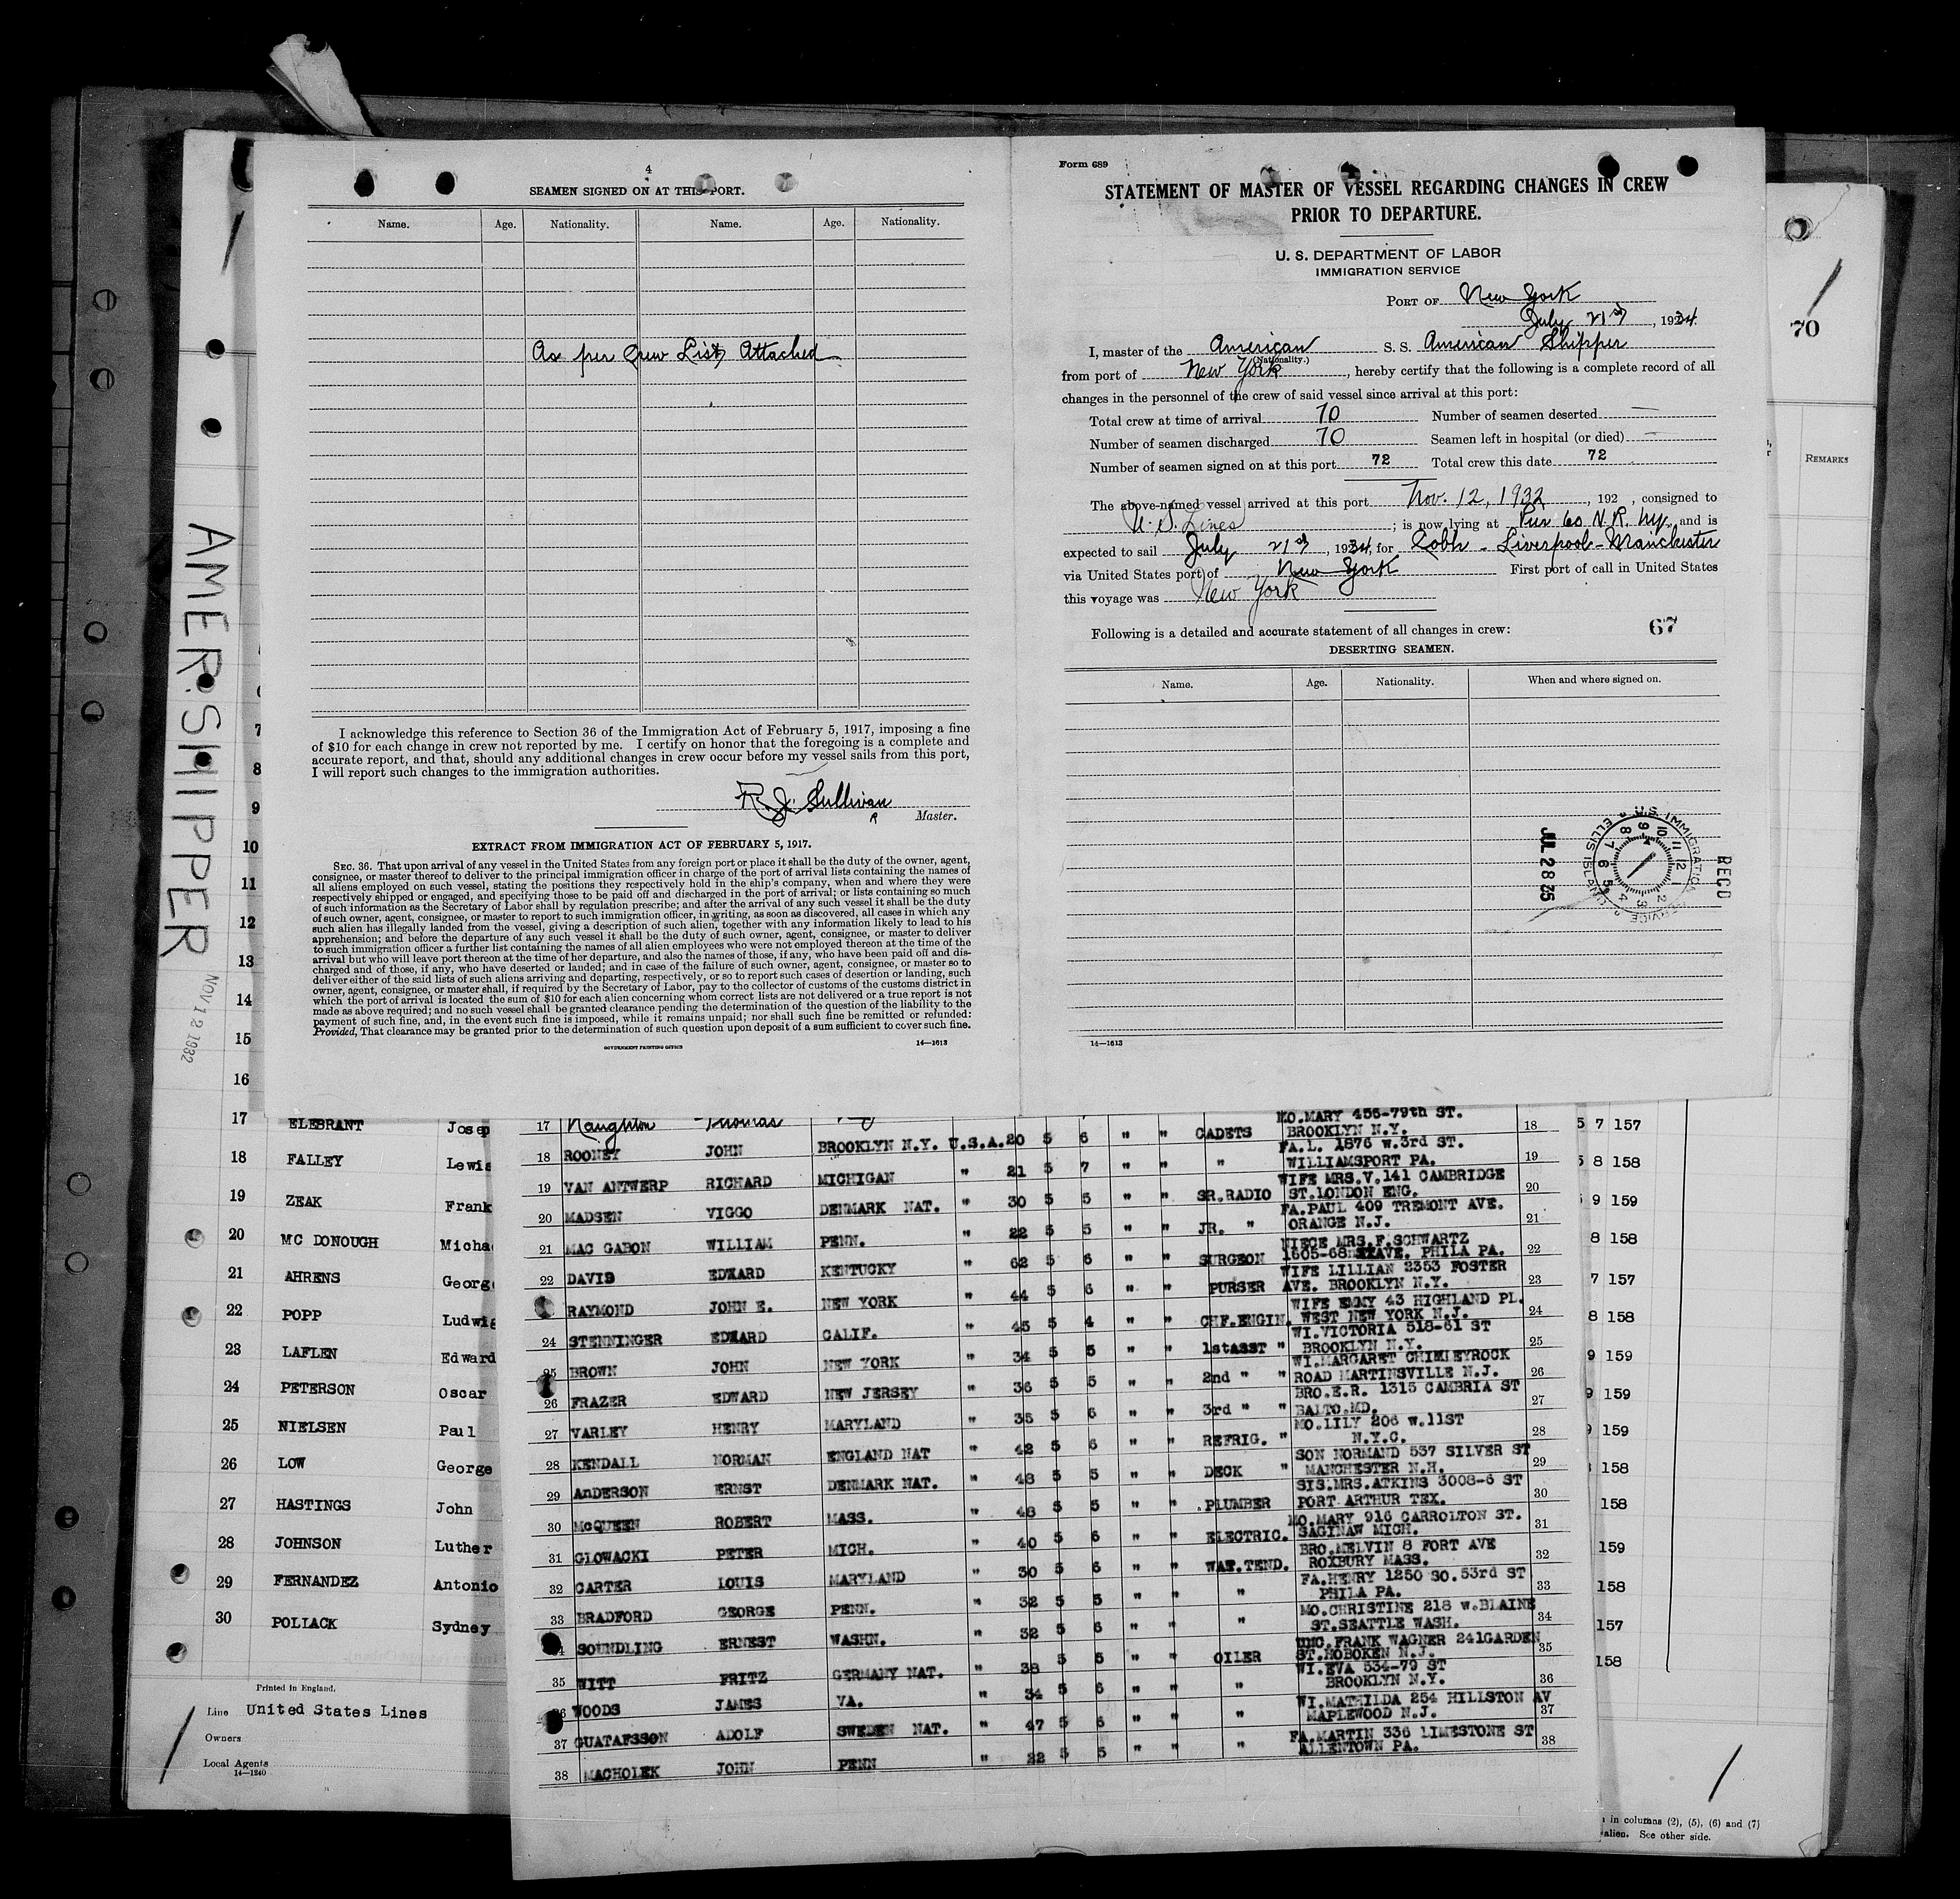 4
SEAMEN SIGNED ON AT THIS PORT.
Name. Age. Nationality. Name. Age. Nationality.
As per Crew List Attached
I acknowledge this reference to Section 36 of the Immigration Act of February 5, 1917, imposing a fine
of $10 for each change in crew not reported by me. I certify on honor that the foregoing is a complete and
accurate report, and that, should any additional changes in crew occur before my vessel sails from this port,
I will report such changes to the immigration authorities.
R. J. Sullivan
Master.
EXTRACT FROM IMMIGRATION ACT OF FEBRUARY 5, 1917.
SEC. 36. That upon arrival of any vessel in the United States from any foreign port or place it shall be the duty of the owner, agent,
consignee, or master thereof to deliver to the principal immigration officer in charge of the port of arrival lists containing the names of
all aliens employed on such vessel, stating the positions they respectively hold in the ship's company, when and where they were
respectively shipped or engaged, and specifying those to be paid off and discharged in the port of arrival; or lists containing so much
of such information as the Secretary of Labor shall by regulation prescribe; and after the arrival of any such vessel it shall be the duty
of such owner, agent, consignee, or master to report to such immigration officer, in writing, as soon as discovered, all cases in which any
such alien has illegally landed from the vessel, giving a description of such alien, together with any information likely to lead to his
apprehension; and before the departure of any such vessel it shall be the duty of such owner, agent, consignee, or master to deliver
to such immigration officer a further list containing the names of all alien employees who were not employed thereon at the time of the
arrival but who will leave port thereon at the time of her departure, and also the names of those, if any, who have been paid off and dis-
charged and of those, if any, who have deserted or landed; and in case of the failure of such owner, agent, consignee, or master so to
deliver either of the said lists of such aliens arriving and departing, respectively, or so to report such cases of desertion or landing, such
owner, agent, consignee, or master shall, if required by the Secretary of Labor, pay to the collector of customs of the customs district in
which the port of arrival is located the sum of $10 for each alien concerning whom correct lists are not delivered or a true report is not
made as above required; and no such vessel shall be granted clearance pending the determination of the question of the liability to the
payment of such fine, and, in the event such fine is imposed, while it remains unpaid; nor shall such fine be remitted or refunded:
Provided, That clearance may be granted prior to the determination of such question upon deposit of a sum sufficient to cover such fine.
GOVERNMENT PRINTING OFFICE 14—1613
Form 689
STATEMENT OF MASTER OF VESSEL REGARDING CHANGES IN CREW
PRIOR TO DEPARTURE.
U. S. DEPARTMENT OF LABOR
IMMIGRATION SERVICE
PORT OF New York
July 21st, 1934.
I, master of the American S. S. American Shipper
(Nationality.)
from port of New York, hereby certify that the following is a complete record of all
changes in the personnel of the crew of said vessel since arrival at this port:
Total crew at time of arrival 70 Number of seamen deserted —
Number of seamen discharged 70 Seamen left in hospital (or died) —
Number of seamen signed on at this port 72 Total crew this date 72
The above-named vessel arrived at this port Nov. 12, 1932, 192 , consigned to
U. S. Lines; is now lying at Pier 60 N. R. Ny. and is
expected to sail July 21st, 1934, for Cobh - Liverpool - Manchester
via United States port of New York First port of call in United States
this voyage was New York
67
Following is a detailed and accurate statement of all changes in crew:
DESERTING SEAMEN.
Name. Age. Nationality. When and where signed on.
REC'D
U.S. IMMIGRATION SERVICE ELLIS ISLAND
JUL 28 25
14—1613
AMER. SHIPPER
NOV 12 1932
70
REMARKS
7
8
9
10
11
12
13
14
15
16
17 ELEBRANT Josep
18 FALLEY Lewis
19 ZEAK Frank
20 MC DONOUGH Micha
21 AHRENS George
22 POPP Ludwig
23 LAFLEN Edward
24 PETERSON Oscar
25 NIELSEN Paul
26 LOW George
27 HASTINGS John
28 JOHNSON Luther
29 FERNANDEZ Antonio
30 POLLACK Sydney
Printed in England.
Line United States Lines
Owners
Local Agents
14—1240
17 Naughton Thomas
MO.MARY 456-79th ST.
18 ROONEY JOHN BROOKLYN N.Y. U.S.A. 20 5 6 " " CADETS BROOKLYN N.Y. 18
FA.L. 1876 W.3rd ST.
19 VAN ANTWERP RICHARD MICHIGAN " 21 5 7 " " " WILLIAMSPORT PA. 19
WIFE MRS.V.141 CAMBRIDGE
20 MADSEN VIGGO DENMARK NAT. " 30 5 5 " " SR.RADIO ST.LONDON ENG. 20
FA.PAUL 409 TREMONT AVE.
21 MAC GABON WILLIAM PENN. " 22 5 5 " " JR. " ORANGE N.J. 21
NIECE MRS.F.SCHWARTZ
22 DAVIS EDWARD KENTUCKY " 62 5 6 " " SURGEON 1605-68 AVE. PHILA PA. 22
WIFE LILLIAN 2353 FOSTER
RAYMOND JOHN E. NEW YORK " 44 5 6 " " PURSER AVE. BROOKLYN N.Y. 23
WIFE EMMY 43 HIGHLAND PL.
24 STENNINGER EDWARD CALIF. " 45 5 4 " " CHF.ENGIN. WEST NEW YORK N.J. 24
WI.VICTORIA 518-61 ST
25 BROWN JOHN NEW YORK " 34 5 5 " " 1stASST " BROOKLYN N.Y. 25
WI.MARGARET CHIMLEYROCK
26 FRAZER EDWARD NEW JERSEY " 36 5 5 " " 2nd " " ROAD MARTINSVILLE N.J. 26
BRO.E.R. 1315 CAMBRIA ST
27 VARLEY HENRY MARYLAND " 35 5 6 " " 3rd " " BALTO.MD. 27
MO.LILY 206 W.11ST
28 KENDALL NORMAN ENGLAND NAT " 42 5 6 " " REFRIG. " N.Y.C. 28
SON NORMAND 537 SILVER ST
29 AnDERSON ERNST DENMARK NAT. " 48 5 5 " " DECK " MANCHESTER N.H. 29
SIS.MRS.ATKINS 3008-6 ST
30 McQUEEN ROBERT MASS. " 48 5 5 " " PLUMBER PORT ARTHUR TEX. 30
MO.MARY 916 CARROLTON ST.
31 GLOWACKI PETER MICH. " 40 5 6 " " ELECTRIC. SAGINAW MICH. 31
BRO.MELVIN 8 FORT AVE
32 CARTER LOUIS MARYLAND " 30 5 6 " " WAT.TEND. ROXBURY MASS. 32
FA.HENRY 1250 SO.53rd ST
33 BRADFORD GEORGE PENN. " 32 5 5 " " " PHILA PA. 33
MO.CHRISTINE 218 W.BLAINE
34 SOUNDLING ERNEST WASHN. " 32 5 6 " " " ST.SEATTLE WASH. 34
UNC.FRANK WAGNER 241GARDEN
35 WITT FRITZ GERMANY NAT. " 38 5 5 " " OILER ST.HOBOKEN N.J. 35
WI.EVA 534-79 ST
36 WOODS JAMES VA. " 34 5 6 " " " BROOKLYN N.Y. 36
WI.MATHILDA 254 HILLSTON AV
37 GUATAFSSON ADOLF SWEDEN NAT. " 47 5 6 " " " MAPLEWOOD N.J. 37
FA.MARTIN 336 LIMESTONE ST
38 MACHOLEK JOHN PENN " 22 5 5 " " " ALLENTOWN PA. 38
5 7 157
5 8 158
9 159
8 158
7 157
8 158
9 159
9 159
9 159
158
158
159
158
157
158
in columns (2), (5), (6) and (7)
alien. See other side.